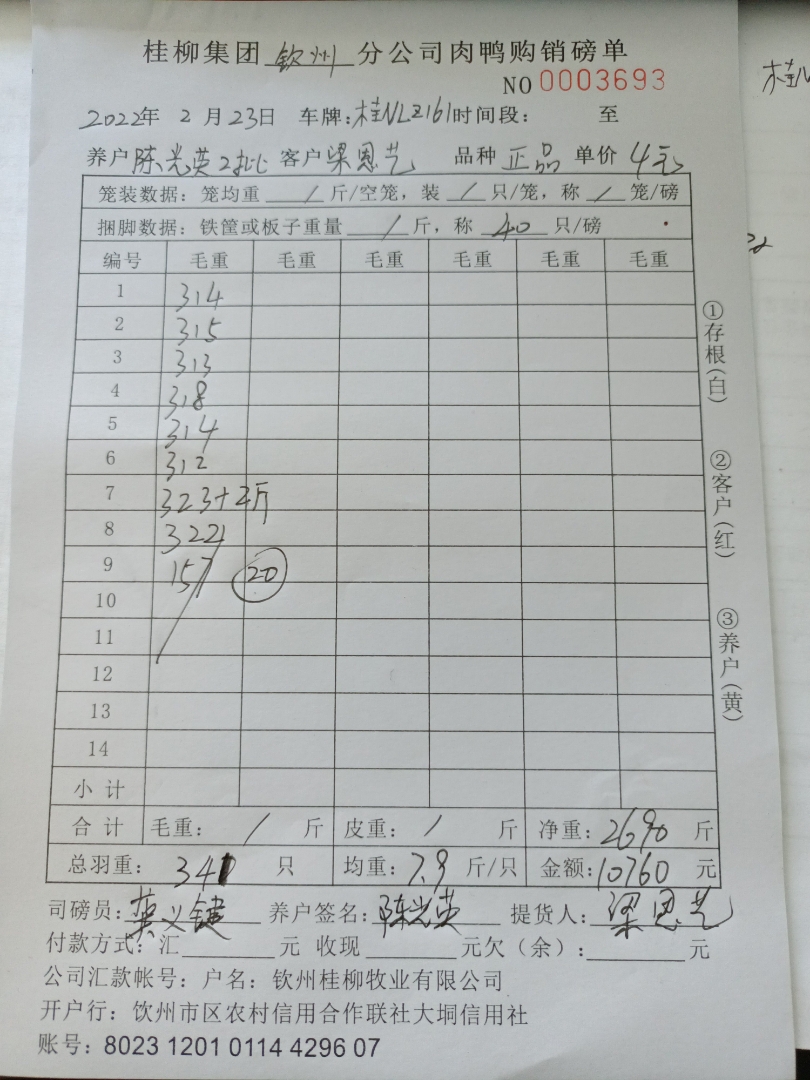 桂柳集团 钦州 分公司肉鸭购销磅单
NO 0003693
2022年 2 月 23日 车牌:桂NLZ161 时间段: 至
养户 陈光英2批 客户 梁恩艺 品种 正品 单价 4元
笼装数据: 笼均重 / 斤/空笼, 装 / 只/笼, 称 / 笼/磅
捆脚数据: 铁筐或板子重量 / 斤, 称 40 只/磅
编号 毛重 毛重 毛重 毛重 毛重 毛重
1 314
2 315
3 313
4 318
5 314
6 312
7 323+2斤
8 322
9 157 20
10
11
12
13
14
小计
合计 毛重: / 斤 皮重: / 斤 净重: 2690 斤
总羽重: 341 只 均重: 7.9 斤/只 金额: 10760 元
司磅员: 莫义键 养户签名: 陈光英 提货人: 梁恩艺
付款方式: 汇 元 收现 元欠(余): 元
公司汇款帐号: 户名: 钦州桂柳牧业有限公司
开户行: 饮州市区农村信用合作联社大垌信用社
账号: 8023 1201 0114 4296 07
①存根(白)
②客户(红)
③养户(黄)